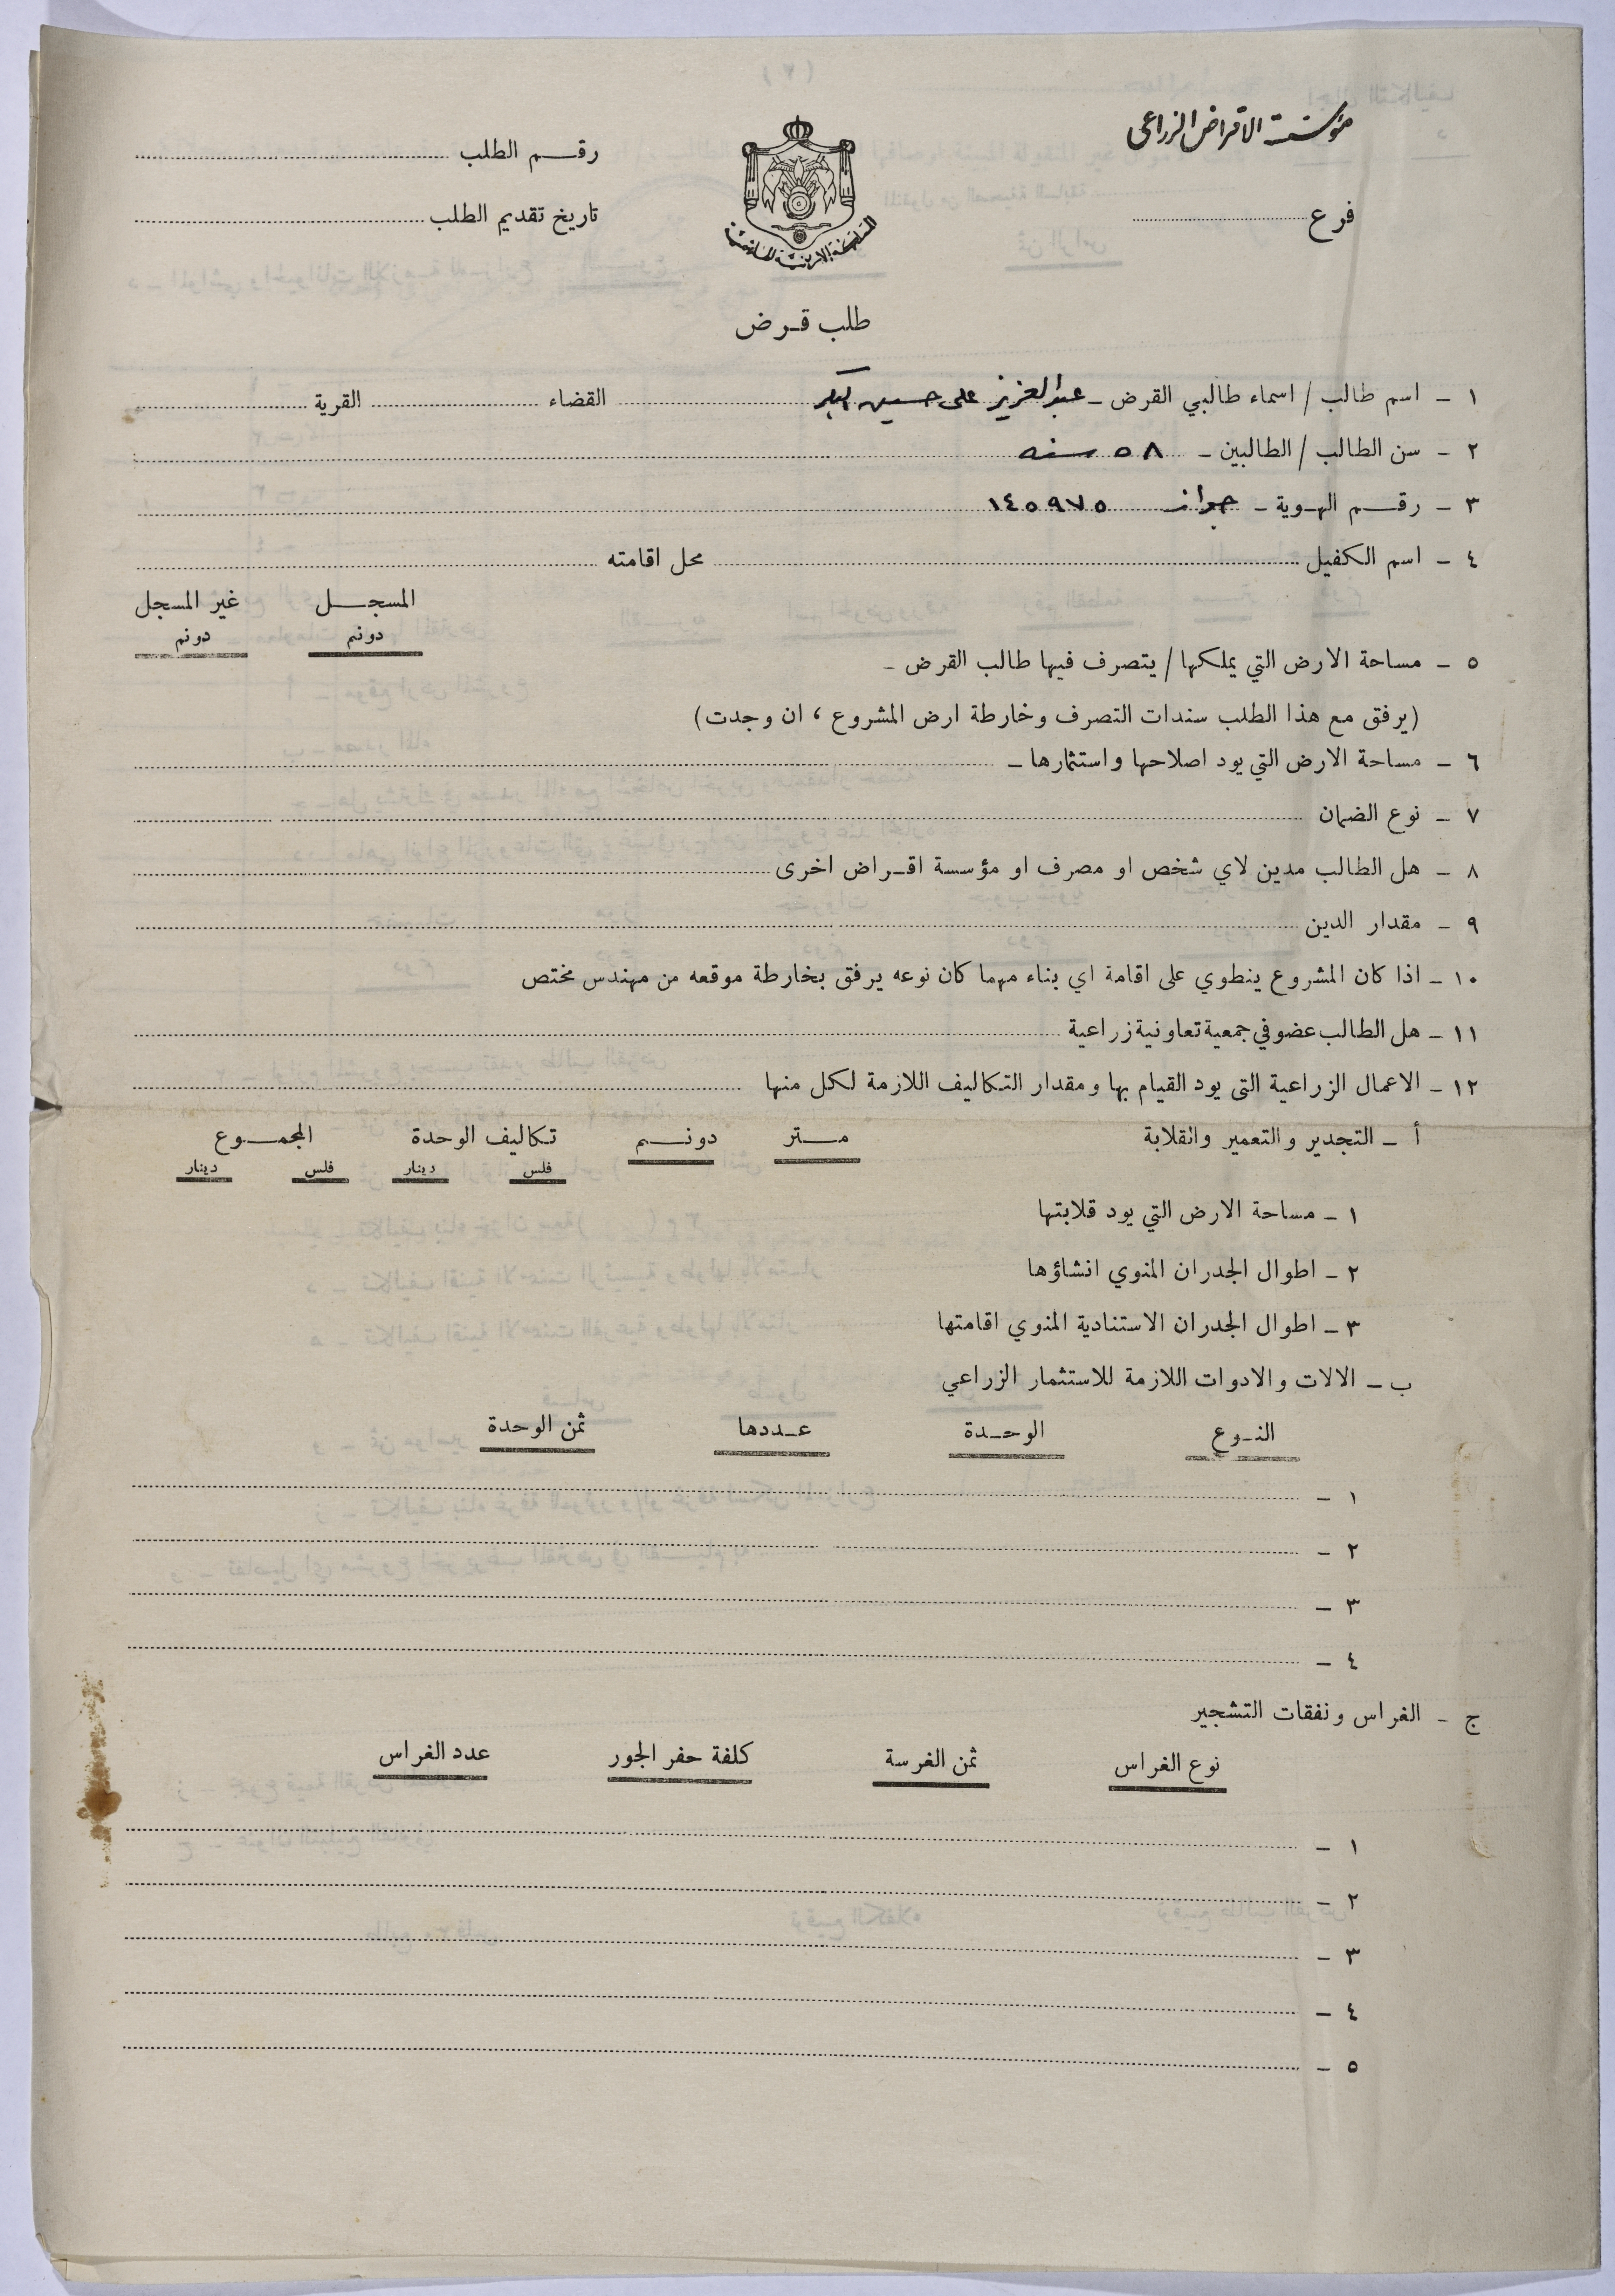 مؤسسة الاقراض الزراعي
رقم الطلب
فرع
تاريخ تقديم الطلب
المملكة الاردنية الهاشمية
طلب قرض
١ - اسم طالب / اسماء طالبي القرض - عبد العزيز علي حسين القضاء القرية
٢ - سن الطالب / الطالبين - ٥٨ سنه
٣ - رقم الهوية - جواز ١٤٥٩٧٥
٤ - اسم الكفيل محل اقامته
المسجل غير المسجل
دونم دونم
٥ - مساحة الارض التي يملكها / يتصرف فيها طالب القرض -
(يرفق مع هذا الطلب سندات التصرف وخارطة ارض المشروع ، ان وجدت)
٦ - مساحة الارض التي يود اصلاحها واستثمارها -
٧ - نوع الضمان
٨ - هل الطالب مدين لاي شخص او مصرف او مؤسسة اقراض اخرى
٩ - مقدار الدين
١٠ - اذا كان المشروع ينطوي على اقامة اي بناء مهما كان نوعه يرفق بخارطة موقعه من مهندس مختص
١١ - هل الطالب عضو في جمعية تعاونية زراعية
١٢ - الاعمال الزراعية التى يود القيام بها ومقدار التكاليف اللازمة لكل منها
أ - التجدير والتعمير وانقلابة متر دونم تكاليف الوحدة المجموع
فلس دينار فلس دينار
١ - مساحة الارض التي يود قلابتها
٢ - اطوال الجدران المنوي انشاؤها
٣ - اطوال الجدران الاستنادية المنوي اقامتها
ب - الالات والادوات اللازمة للاستثمار الزراعي
النوع الوحدة عددها ثمن الوحدة
١ -
٢ -
٣ -
٤ -
ج - الغراس ونفقات التشجير
نوع الغراس ثمن الغرسة كلفة حفر الجور عدد الغراس
١ -
٢ -
٣ -
٤ -
٥ -